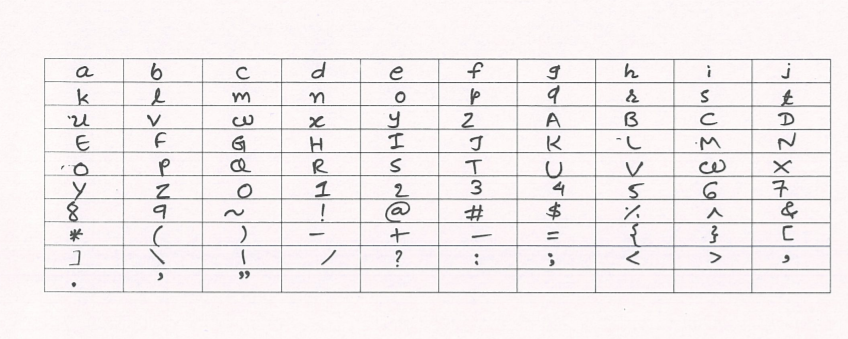 a b c d e f g h i j
k l m n o p q r s t
u v w x y z A B C D
E F G H I J K L M N
O P Q R S T U V W X
Y Z 0 1 2 3 4 5 6 7
8 9 ~ ! @ # $ % ^ &
* ( ) - + _ = { } [
] \ | / ? : ; < > ,
. ' "